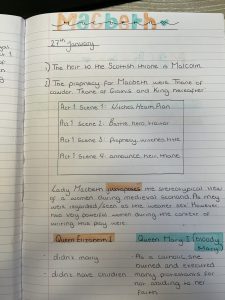 Macbeth
27th January
1) The heir to the Scottish throne is Malcolm.
2) The prophecy for Macbeth were Thane of
cawdor, Thane of Glamis and King hereafter
Act 1 Scene 1: Witches, Heath, Plan
Act 1 Scene 2: Battle, hero, traitor
Act 1 Scene 3: Prophecy, witches, title
Act 1 Scene 4: announce, heir, throne
Lady Macbeth juxtaposes the stereotypical view
of a women during medieval scotland. As they
were regarded/seen as the weaker sex. However
had very powerful women during the context of
writing this play were:
Queen Elizabeth I
Queen Mary I (Bloody
Mary)
- didn't marry
- didn't have children
- As a catholic, she
burned and executed
many protestants for
not abiding to her
faith